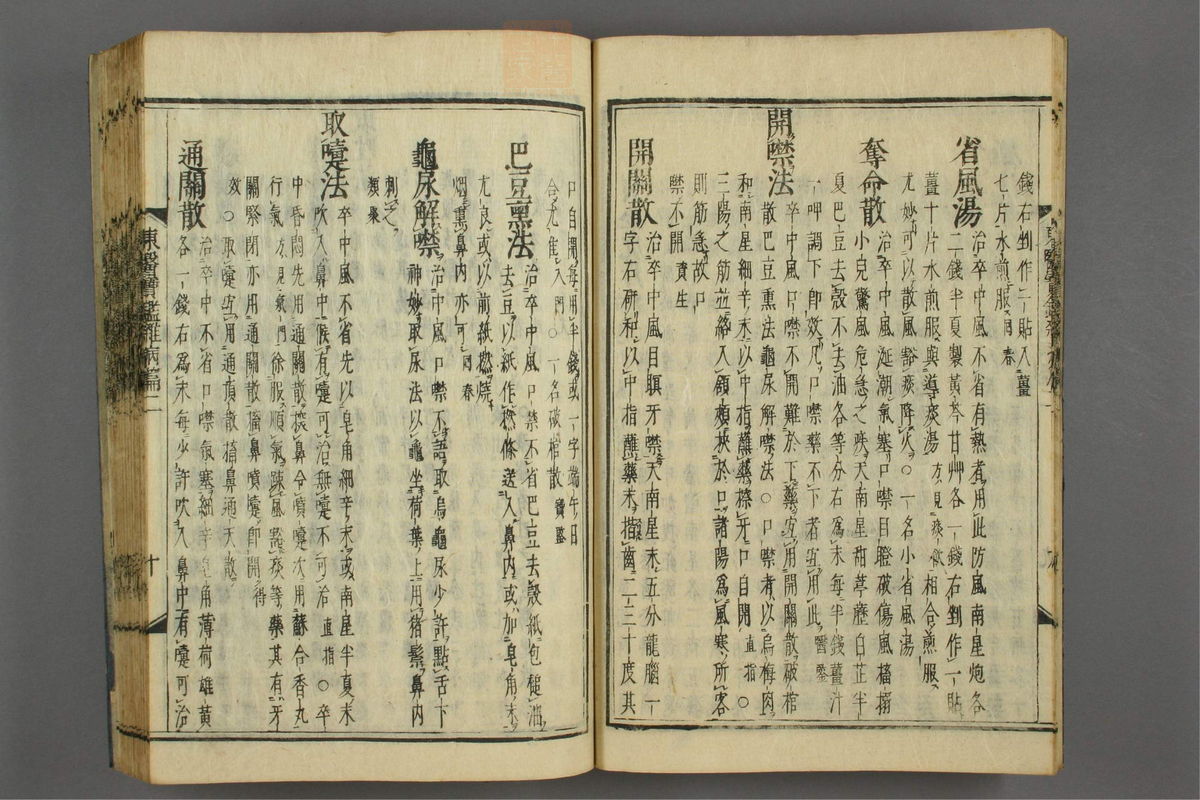 錢右剉作一貼入薑
七片水煎服回春
省風湯
治卒中風不省有熱者用此防風南星炮各
二錢半夏製黃芩甘艸各一錢右剉作一貼
薑十片水煎服與導痰湯方見痰飲相合煎服
尤妙可以散風豁痰降火○一名小省風湯
奪命散
治卒中風涎潮氣塞口噤目瞪破傷風搐搦
小兒驚風危急之疾天南星甜葶藶白芷半
夏巴豆去殼不去油各等分右爲末每半錢薑汁
一呷調下卽效凡口噤藥不下者宜用此醫鑒
開噤法
卒中風口噤不開難於下藥宜用開關散破棺
散巴豆熏法龜尿解噤法○口噤者以烏梅肉
和南星細辛末以中指蘸藥擦牙口自開直指○
三陽之筋並絡入頷頰挾於口諸陽爲風寒所客
則筋急故口
噤不開資生
開關散
治卒中風目瞑牙噤天南星末五分龍腦一
字右研和以中指蘸藥末揩齒二三十度其
口自開每用半錢或一字端午日
合尤佳入門○一名破棺散寶鑒
巴豆熏法
治卒中風口噤不省巴豆去殼紙包槌油
去豆以紙作撚條送入鼻內或加皂角末
尤良或以前紙撚燒
烟熏鼻內亦可回春
龜尿解噤
治中風口噤不語取烏龜尿少許點舌下
神妙取尿法以龜坐荷葉上用猪鬃鼻內
刺之
類聚
取嚔法
卒中風不省先以皂角細辛末或南星半夏末
吹入鼻中候有嚔可治無嚔不可治直指○卒
中昏悶先用通關散㨪鼻令噴嚔次用蘇合香丸
行氣方見氣門徐服順氣疎風豁痰等藥其有牙
關緊閉亦用通關散搐鼻噴嚔卽開得
效○取嚔宜用通頂散搐鼻通天散
通關散
治卒中不省口噤氣塞細辛皂角薄荷雄黃
各一錢右爲末每少許吹入鼻中有嚔可治
東醫寶鑑雜病篇二
十